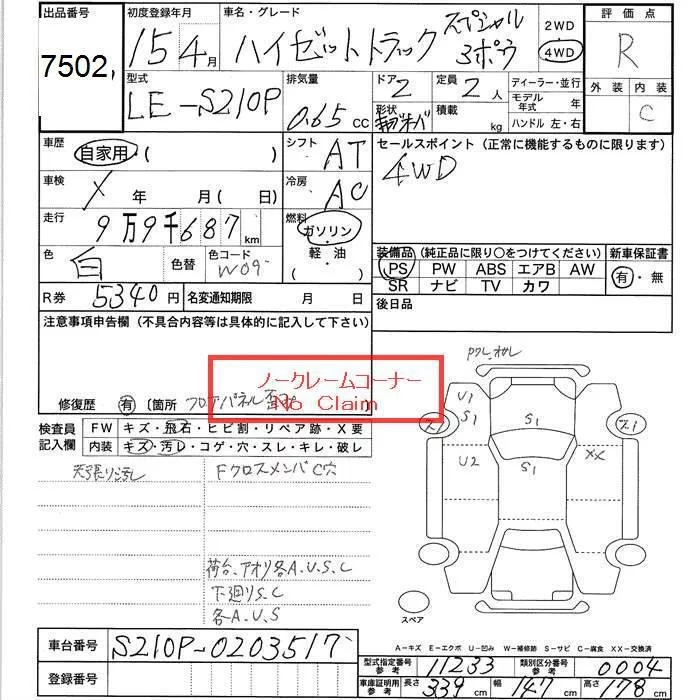 出品番号
7502,
初度登録年月
15 4月
車名・グレード
ハイゼットトラック スペシャル
3ポウ
2WD
4WD
評価点
R
外装 内装
C
型式
LE-S210P
排気量
0.65 cc
ドア
2
定員
2人
形状
積載
kg
ディーラー・並行
モデル年式 年
ハンドル 左・右
車歴
自家用・( )
シフト
AT
セールスポイント (正常に機能するものに限ります)
4WD
車検
X 年 月( 日)
冷房
AC
走行
9万9千687 km
燃料
ガソリン
軽・油
( )
色
白
色替
色コード
W09
装備品 (純正品に限り○をつけてください)
PS PW ABS エアB AW
SR ナビ TV カワ
新車保証書
有・無
R券 5340円
名変通知期限 月 日
後日品
注意事項申告欄 (不具合内容等は具体的に記入して下さい)
ノークレームコーナー
No Claim
修復歴 有 〔箇所 フロアパネル
検査員記入欄
FW キズ・飛石・ヒビ割・リペア跡・X要
内装 キズ・汚レ・コゲ・穴・スレ・キレ・破レ
天張り汚レ
FクロスメンバC穴
荷台、アオリ各A.U.S.C
下廻りS.C
各A.U.S
U1
S1
U2
S1
S1
XX
スペア
A-キズ E-エクボ U-凹み W-補修跡 S-サビ C-腐食 XX-交換済
車台番号
S210P-0203517
登録番号
型式指定番号 参考
11233
類別区分番号 参考
0004
車庫証明用 参考
長さ 339 cm
幅 147 cm
高さ 178 cm